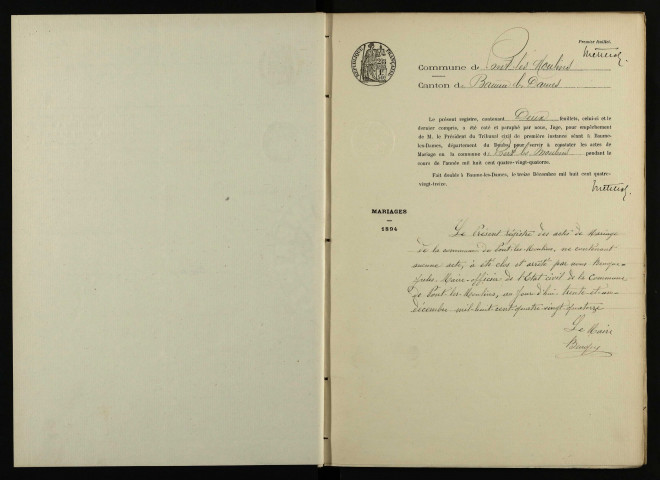 Premier feuillet.
RÉPUBLIQUE FRANÇAISE
Commune de Pont les Moulins
Canton de Baume les Dames
Le présent registre, contenant Deux feuillets, celui-ci et le
dernier compris, a été coté et paraphé par nous, Juge, pour empêchement
de M. le Président du Tribunal civil de première instance séant à Baume-
les-Dames, département du Doubs, pour servir à constater les actes de
Mariage en la commune de Pont les Moulins pendant le
cours de l'année mil huit cent quatre-vingt-quatorze.
Fait double à Baume-les-Dames, le treize Décembre mil huit cent quatre-
vingt-treize.
MARIAGES
1894
Le Présent registre des actes de Mariage
de la commune de Pont-les-Moulins, ne contenant
aucune acte, a été clos et arrêté par nous
Jules, Maire, officier de l'Etat civil de la Commune
de Pont les Moulins, au jourd'hui trente et un
décembre mil huit cent quatre vingt quatorze
Le Maire